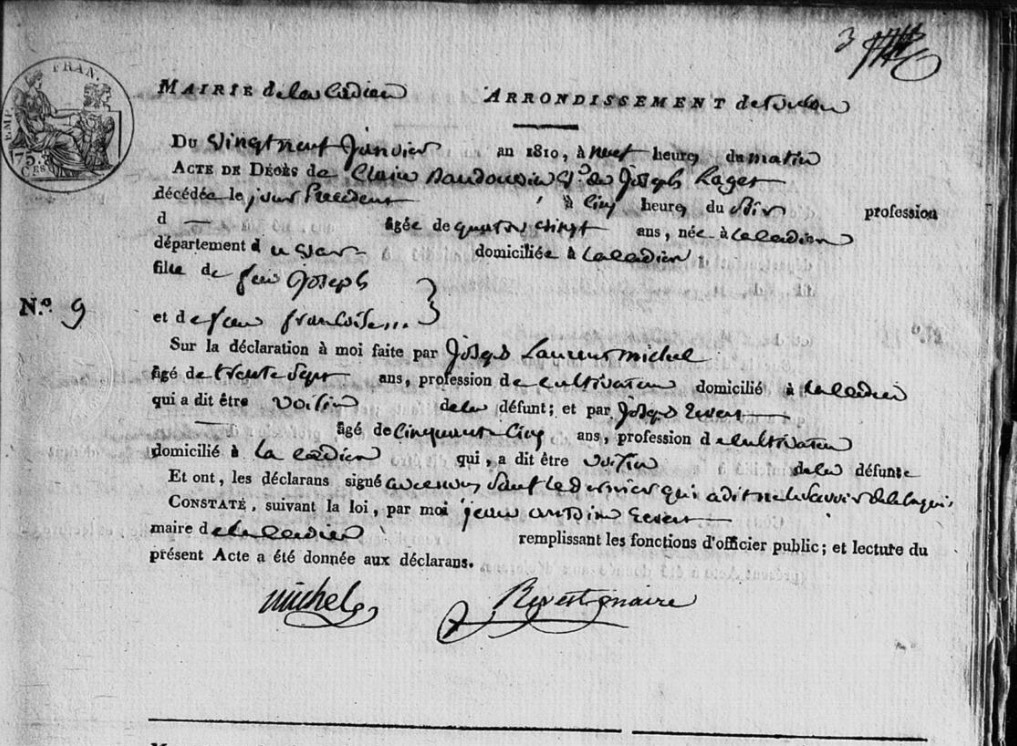 3
EMP. FRAN.
75.
CES
MAIRIE de la Cadiere ARRONDISSEMENT de toulon
Du vingt neuf Janvier an 1810, à neuf heures du matin
ACTE DE DÉCÈS de Claire Baudouin Ve. de Joseph Lager
décédée le jour Precedent à Cinq heures du Soir profession
d — âgée de quatre vingt ans, née à la Cadiere
département du var domiciliée à la Cadiere
fille de feu Joseph
N.º 9
et de feue francoise...
Sur la déclaration à moi faite par Joseph Laurent michel
âgé de trente Sept ans, profession de cultivateur domicilié à la Cadiere
qui a dit être voisin de la défunte; et par Joseph
âgé de Cinquante Cinq ans, profession de cultivateur
domicilié à la Cadiere qui, a dit être voisin de la défunte
Et ont, les déclarans signé avec nous Sauf le dernier qui a dit ne le Savoir de ce requis
CONSTATÉ, suivant la loi, par moi jean antoine
maire de la Cadiere remplissant les fonctions d'officier public; et lecture du
présent Acte a été donnée aux déclarans.
michel maire